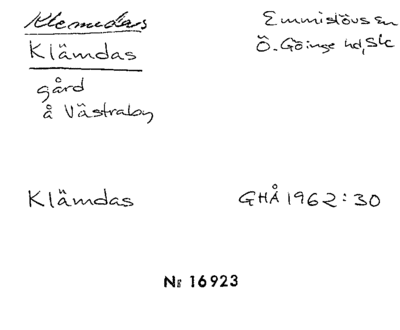 Klemedas
Emmislövs sn
Klämdas
Ö. Göinge hd, Sk
gård
å Västraby
Klämdas
GHÅ 1962:30
№ 16923